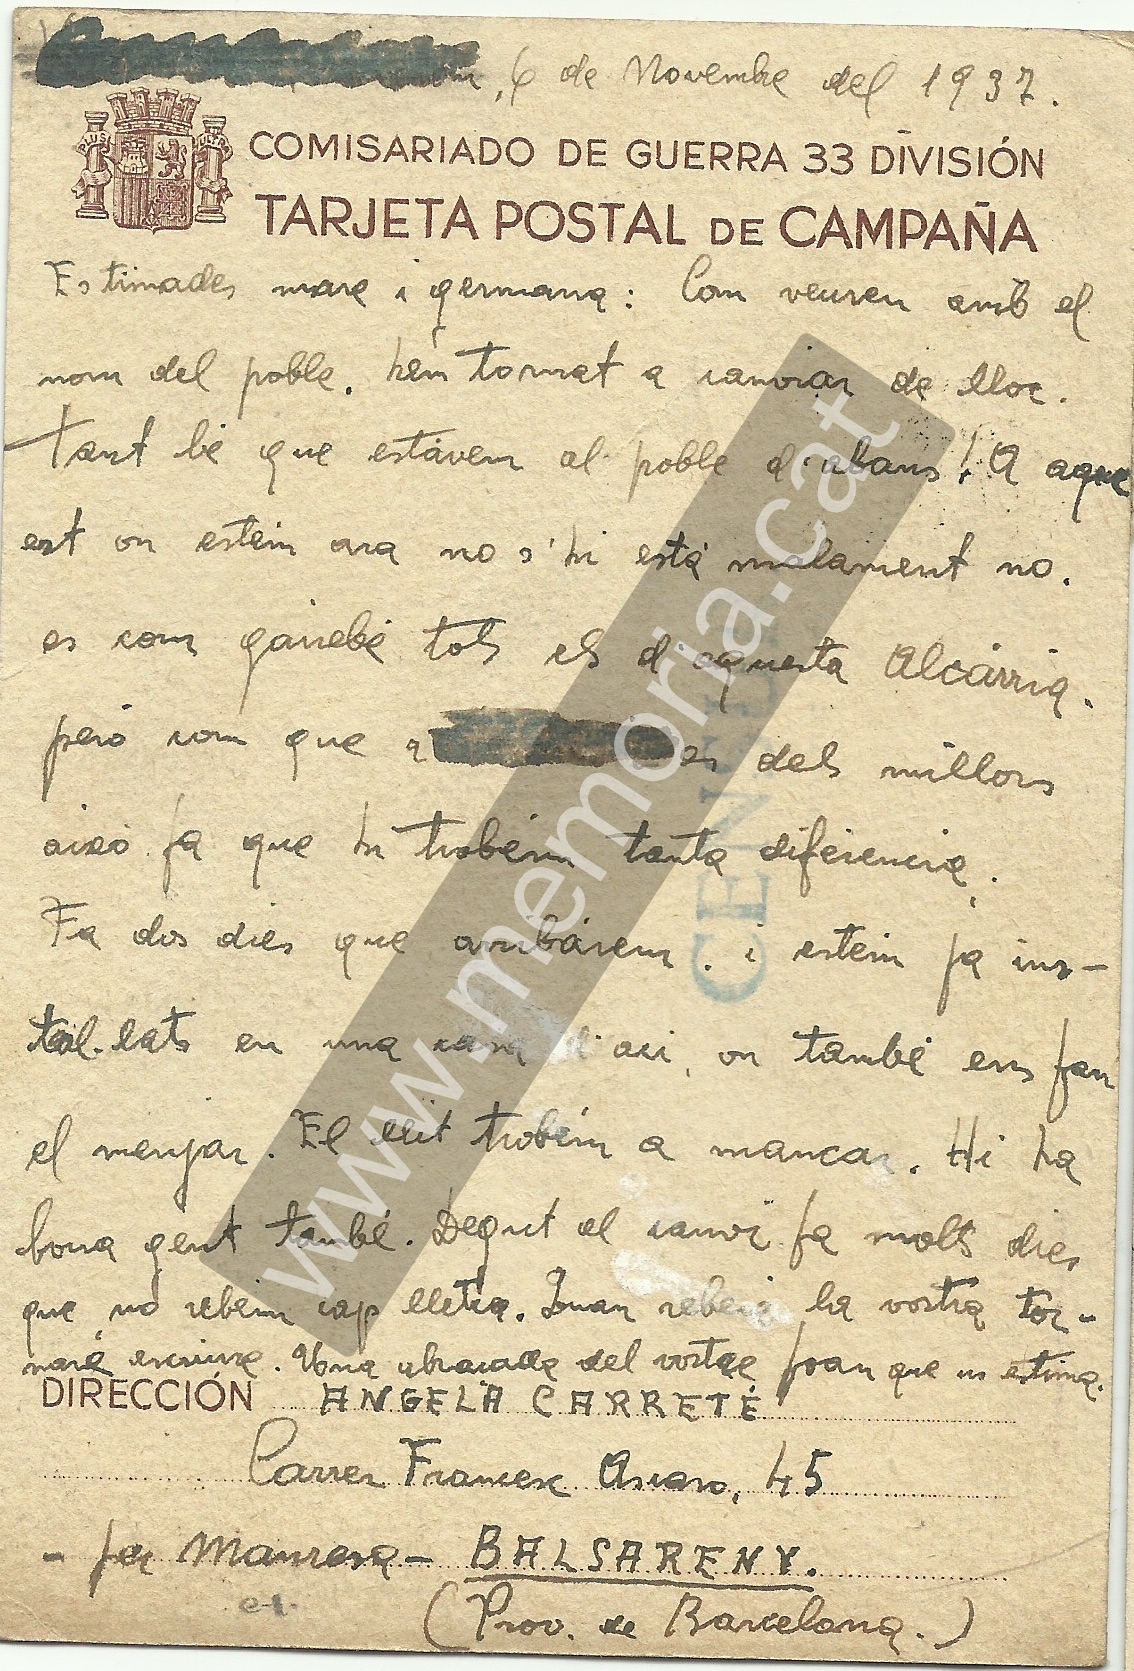 , 6 de Novembre del 1937.
PLUS ULTRA
COMISARIADO DE GUERRA 33 DIVISIÓN
TARJETA POSTAL DE CAMPAÑA
Estimades mare i germana: Com veuren amb el
nom del poble, hem tornat a canviar de lloc.
Tant bé que estàvem al poble d'abans! A aque
est on estem ara no s'hi està malament no,
es com gairebé tots els d'aquesta Alcàrria.
però com que a es dels millors
aixó fa que hi trobém tanta diferencia.
Fa dos dies que arribárem. i estem ja ins-
tal·lats en una casa d'aci, on també ens fan
el menjar. El llit trobém a mancar. Hi ha
bona gent també. Degut al canvi fa molts dies
que no rebem cap lletra. Quan rebeig la vostra tor-
naré escriure. Una abraçada del vostre Joan que us estima.
DIRECCIÓN ANGELA CARRETÉ
Carrer Francesc Ascaso, 45
- per Manresa - BALSARENY.
(Prov. de Barcelona.)
CENSU
www.memoria.cat